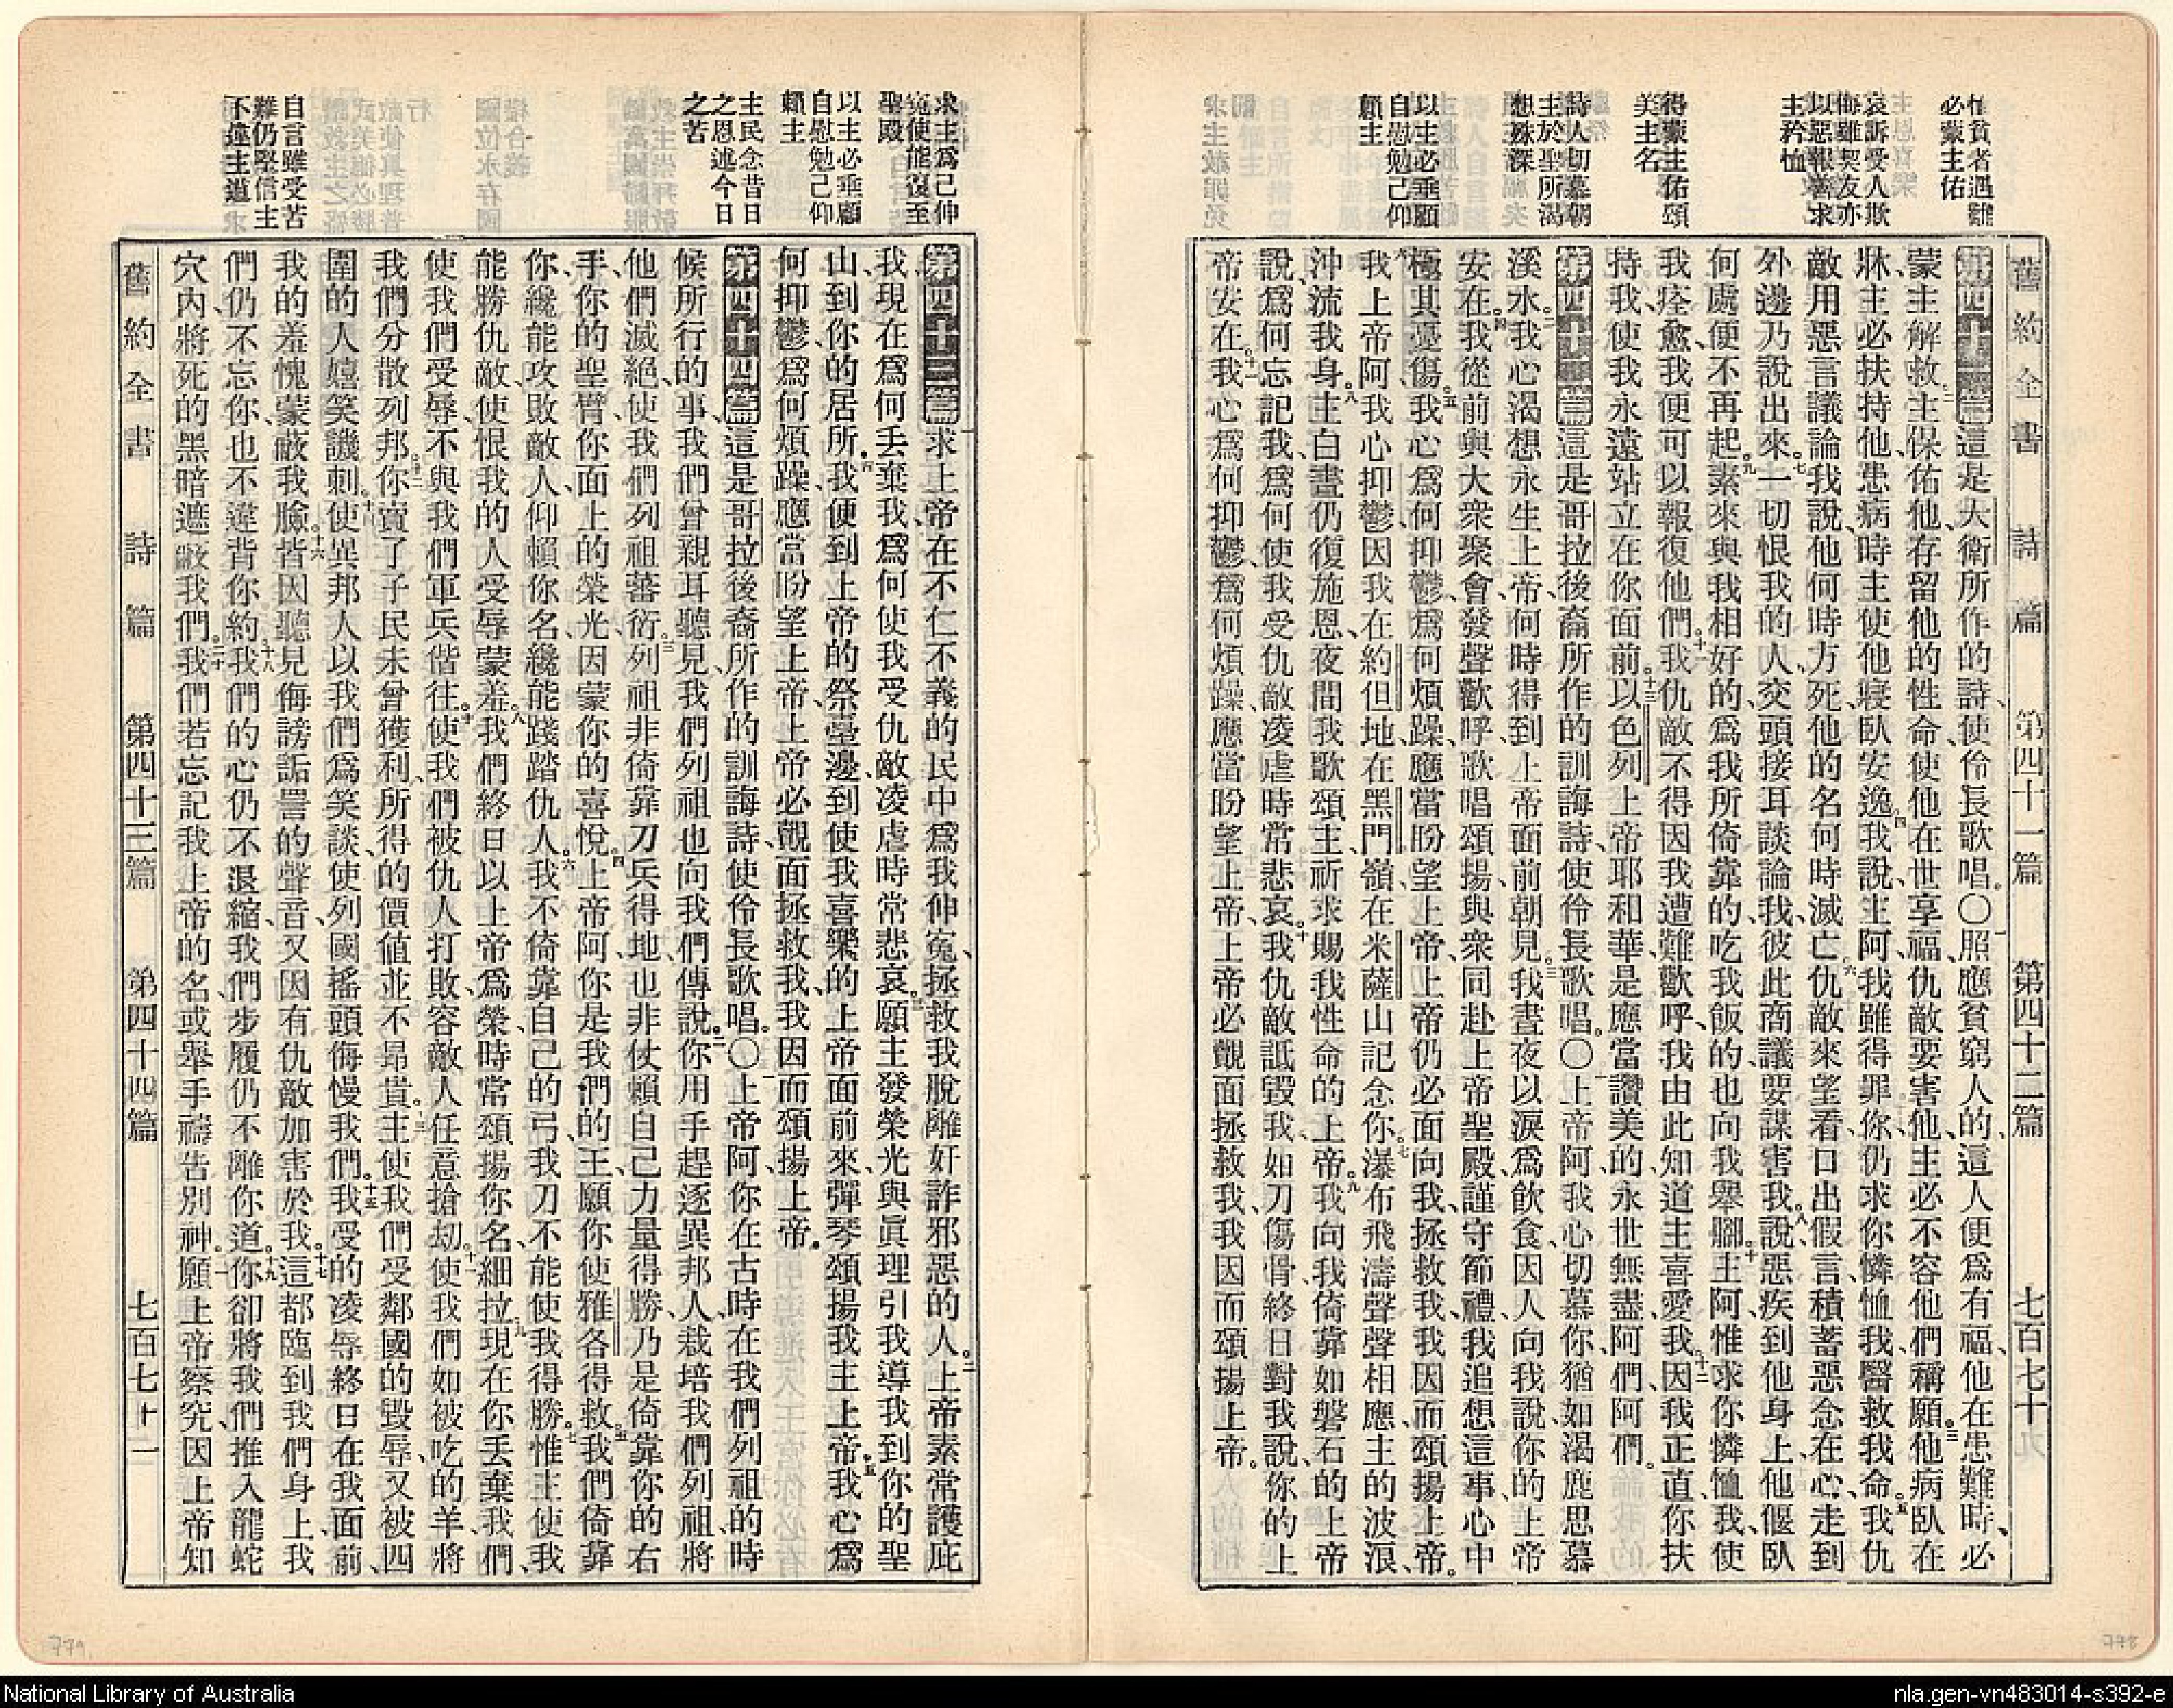 恤貧者遇難
必蒙主佑
哀訴受人欺
侮雖契友亦
以惡報善求
主矜恤
得蒙主佑頌
美主名
詩人切慕朝
主於聖所渴
想殊深
以主必垂顧
自慰勉己仰
賴主
舊約全書 詩篇 第四十一篇 第四十二篇 七百七十
第四十一篇這是大衛所作的詩、使伶長歌唱。〇照應貧窮人的、這人便爲有福、他在患難時、必
蒙主解救。主保佑他、存留他的性命、使他在世享福、仇敵要害他、主必不容他們稱願。他病臥在
牀、主必扶持他、患病時主使他寢臥安逸。我說、主阿、我雖得罪你、仍求你憐恤我、醫救我命。我仇
敵用惡言議論我說、他何時方死、他的名何時滅亡。仇敵來望看、口出假言、積蓄惡念在心、走到
外邊乃說出來。一切恨我的人、交頭接耳談論我、彼此商議要謀害我。說惡疾到他身上、他偃臥
何處、便不再起。素來與我相好的、爲我所倚靠的、吃我飯的、也向我舉腳。主阿、惟求你憐恤我、使
我痊愈、我便可以報復他們。我仇敵不得因我遭難歡呼、我由此知道主喜愛我。因我正直、你扶
持我、使我永遠站立在你面前。以色列上帝耶和華、是應當讚美的、永世無盡、阿們、阿們。
第四十二篇這是哥拉後裔所作的訓誨詩、使伶長歌唱。〇上帝阿、我心切慕你、猶如渴鹿思慕
溪水。我心渴想永生上帝、何時得到上帝面前朝見。我晝夜以淚爲飲食、因人向我說、你的上帝
安在。我從前與大衆聚會、發聲歡呼、歌唱頌揚、與衆同赴上帝聖殿、謹守節禮、我追想這事、心中
極其憂傷。我心爲何抑鬱、爲何煩躁、應當盼望上帝、上帝仍必面向我、拯救我、我因而頌揚上帝。
我上帝阿、我心抑鬱、因我在約但地、在黑門嶺、在米薩山記念你。瀑布飛濤、聲聲相應、主的波浪、
沖流我身。主白晝仍復施恩、夜間我歌頌主、祈求賜我性命的上帝。我向我倚靠如磐石的上帝
說、爲何忘記我、爲何使我受仇敵凌虐、時常悲哀。我仇敵詆毀我、如刀傷骨、終日對我說、你的上
帝安在。我心爲何抑鬱、爲何煩躁、應當盼望上帝、上帝必覿面拯救我、我因而頌揚上帝。
求主爲己伸
冤使能復至
聖殿
以主必垂顧
自慰勉己仰
賴主
主民念昔日
之恩述今日
之苦
自言雖受苦
難仍堅信主
不違主道
第四十三篇求上帝在不仁不義的民中爲我伸冤、拯救我脫離奸詐邪惡的人。上帝素常護庇
我、現在爲何丟棄我、爲何使我受仇敵凌虐、時常悲哀。願主發榮光與眞理、引我導我、到你的聖
山、到你的居所。我便到上帝的祭臺邊、到使我喜樂的上帝面前來、彈琴頌揚我主上帝。我心爲
何抑鬱、爲何煩躁、應當盼望上帝、上帝必覿面拯救我、我因而頌揚上帝。
第四十四篇這是哥拉後裔所作的訓誨詩、使伶長歌唱。〇上帝阿、你在古時、在我們列祖的時
候所行的事、我們曾親耳聽見、我們列祖也向我們傳說。你用手趕逐異邦人、栽培我們列祖、將
他們滅絕、使我們列祖蕃衍。列祖非倚靠刀兵得地、也非仗賴自己力量得勝、乃是倚靠你的右
手、你的聖臂、你面上的榮光、因蒙你的喜悅。上帝阿、你是我們的王、願你使雅各得救。我們倚靠
你、纔能攻敗敵人、仰賴你名、纔能踐踏仇人。我不倚靠自己的弓、我刀不能使我得勝。惟主使我
能勝仇敵、使恨我的人受辱蒙羞。我們終日以上帝爲榮、時常頌揚你名、細拉。現在你丟棄我們、
使我們受辱、不與我們軍兵偕往。使我們被仇人打敗、容敵人任意搶刧。使我們如被吃的羊、將
我們分散列邦。你賣了子民、未曾獲利、所得的價値並不昂貴。主使我們受鄰國的毀辱、又被四
圍的人嬉笑譏刺。使異邦人以我們爲笑談、使列國搖頭侮慢我們。我受的凌辱終日在我面前、
我的羞愧蒙蔽我臉。皆因聽見侮謗詬詈的聲音、又因有仇敵加害於我。這都臨到我們身上、我
們仍不忘你、也不違背你約。我們的心仍不退縮、我們步履仍不離你道。你卻將我們推入龍蛇
穴內、將死的黑暗遮蔽我們。我們若忘記我上帝的名、或舉手禱告別神。願上帝察究、因上帝知
舊約全書 詩篇 第四十三篇 第四十四篇 七百七十一
779
778
National Library of Australia
nla.gen-vn483014-s392-e